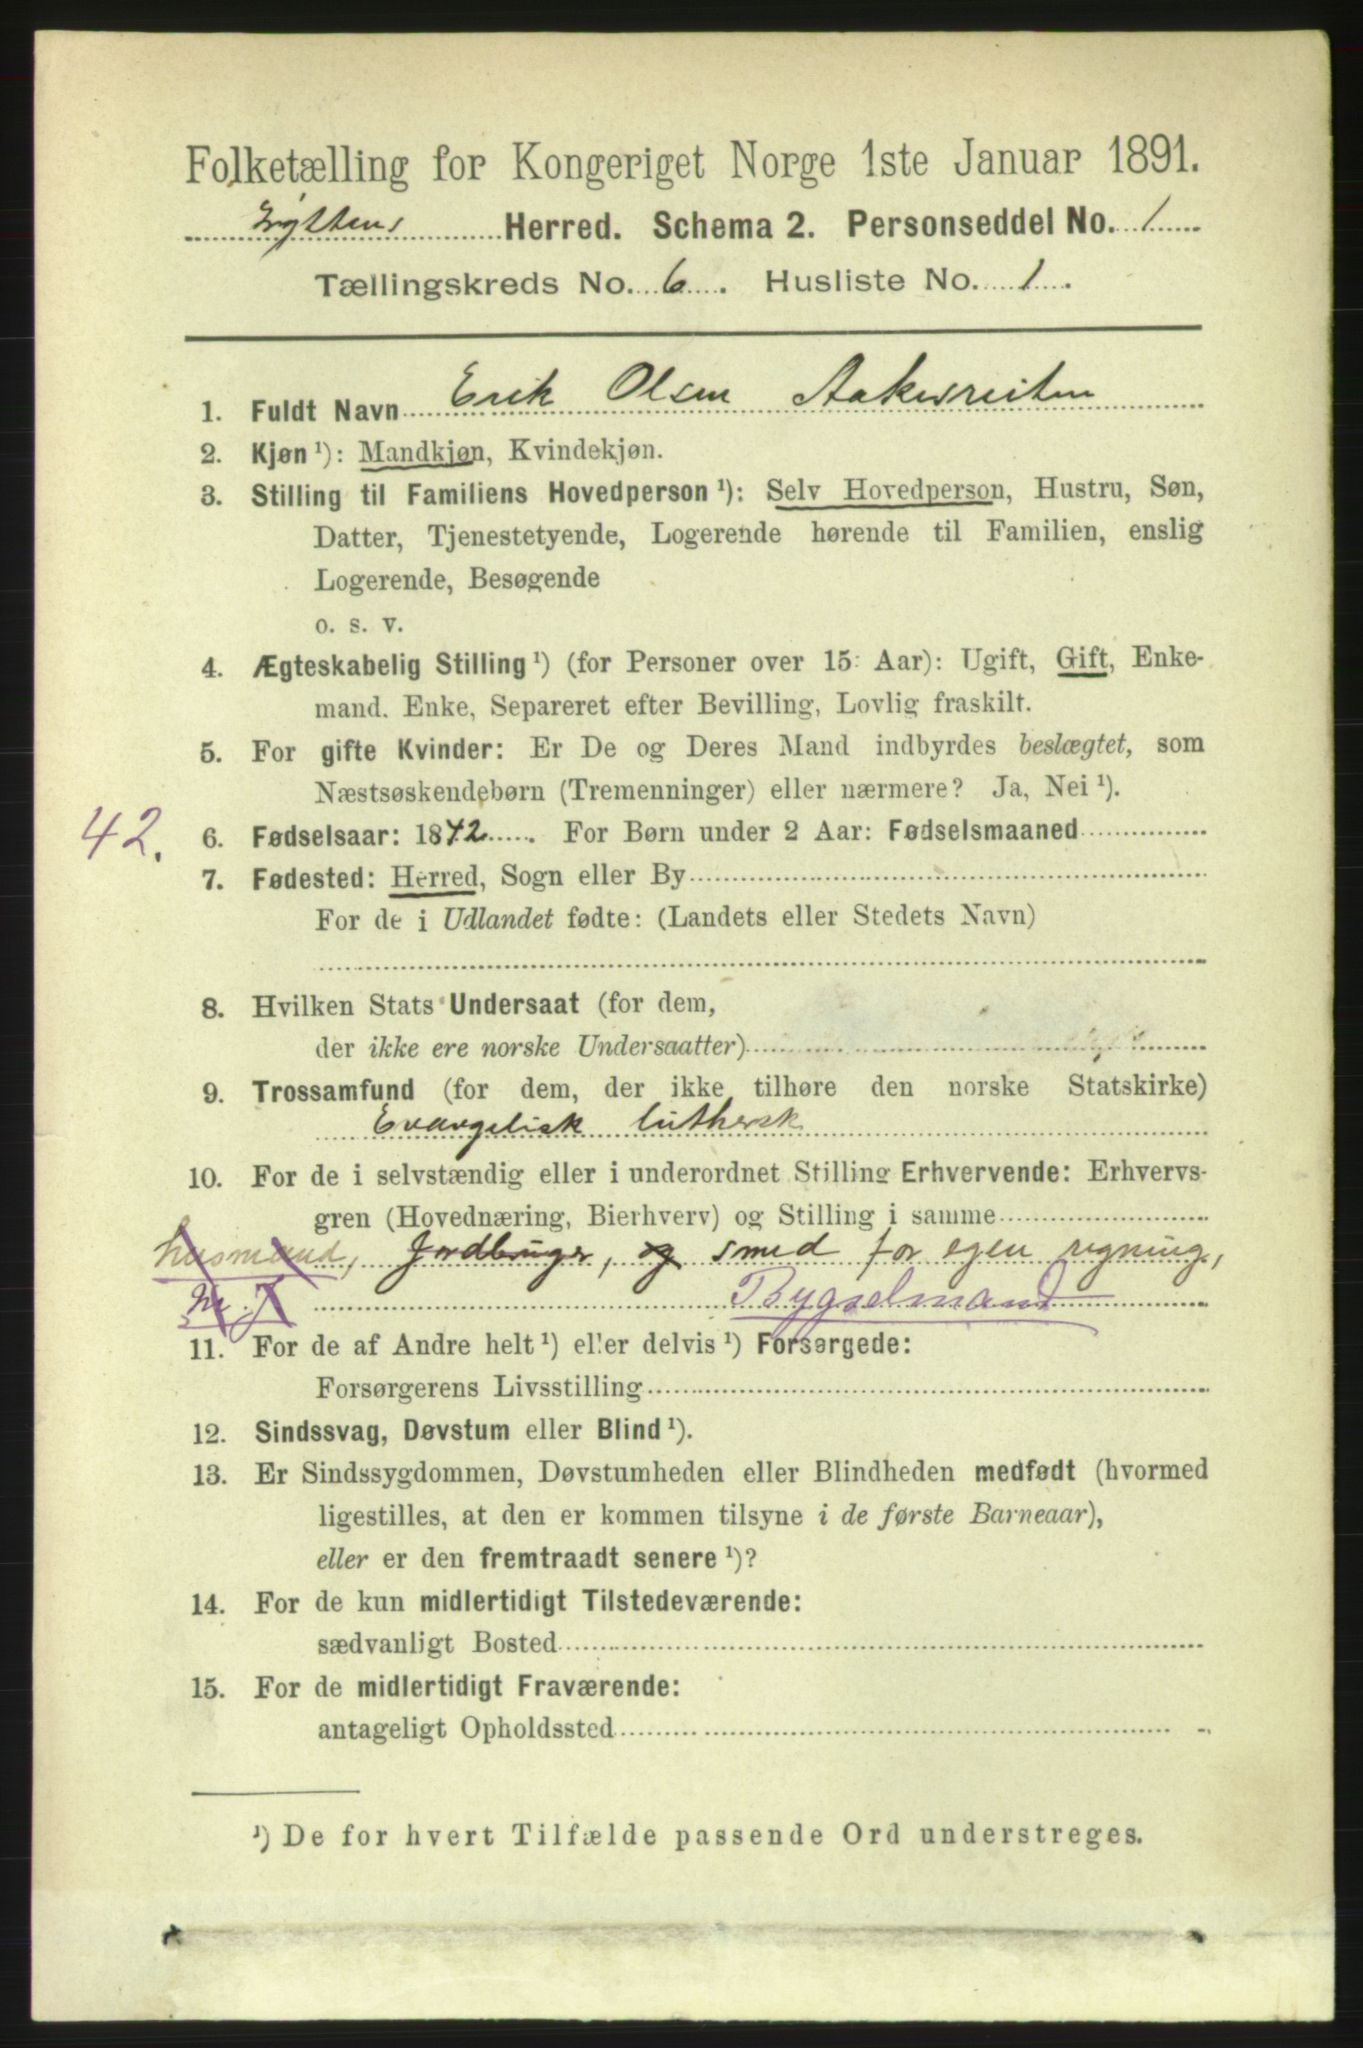 Folketælling for Kongeriget Norge 1ste Januar 1891.
Herred. Schema 2. Personseddel No. 1
Tællingskreds No. 6. Husliste No. 1.
1. Fuldt Navn Erik Olsen Aakesreiten
2. Kjøn ¹): Mandkjøn, Kvindekjøn.
3. Stilling til Familiens Hovedperson ¹): Selv Hovedperson, Hustru, Søn,
Datter, Tjenestetyende, Logerende hørende til Familien, enslig
Logerende, Besøgende
o. s. v.
4. Ægteskabelig Stilling ¹) (for Personer over 15 Aar): Ugift, Gift, Enke-
mand. Enke, Separeret efter Bevilling, Lovlig fraskilt.
5. For gifte Kvinder: Er De og Deres Mand indbyrdes beslægtet, som
Næstsøskendebørn (Tremenninger) eller nærmere? Ja, Nei ¹).
42. 6. Fødselsaar: 1842. For Børn under 2 Aar: Fødselsmaaned
7. Fødested: Herred, Sogn eller By
For de i Udlandet fødte: (Landets eller Stedets Navn)
8. Hvilken Stats Undersaat (for dem,
der ikke ere norske Undersaatter)
9. Trossamfund (for dem, der ikke tilhøre den norske Statskirke)
Evangelisk luthersk
10. For de i selvstændig eller i underordnet Stilling Erhvervende: Erhvervs-
gren (Hovednæring, Bierhverv) og Stilling i samme
husmand, Jordbruger, og smed for egen regning,
m. J Bygselmand
11. For de af Andre helt ¹) eller delvis ¹) Forsørgede:
Forsørgerens Livsstilling
12. Sindssvag, Døvstum eller Blind ¹).
13. Er Sindssygdommen, Døvstumheden eller Blindheden medfødt (hvormed
ligestilles, at den er kommen tilsyne i de første Barneaar),
eller er den fremtraadt senere ¹)?
14. For de kun midlertidigt Tilstedeværende:
sædvanligt Bosted
15. For de midlertidigt Fraværende:
antageligt Opholdssted
¹) De for hvert Tilfælde passende Ord understreges.